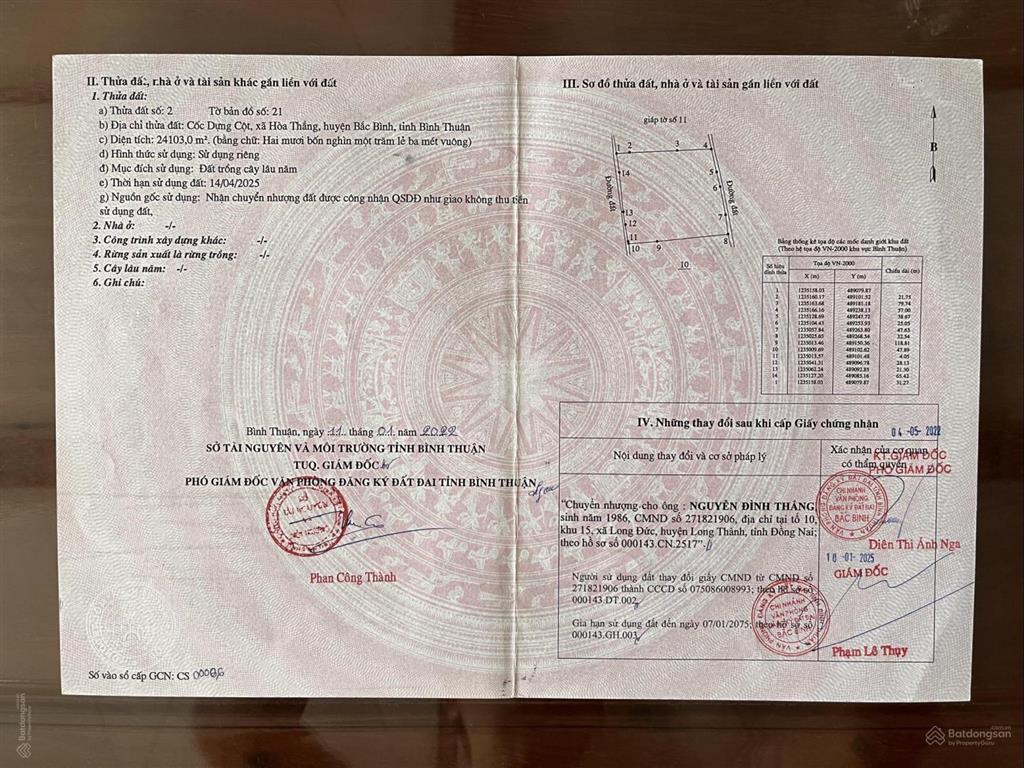 II. Thửa đất, nhà ở và tài sản khác gắn liền với đất
1. Thửa đất:
a) Thửa đất số: 2 Tờ bản đồ số: 21
b) Địa chỉ thửa đất: Cốc Dựng Cột, xã Hòa Thắng, huyện Bắc Bình, tỉnh Bình Thuận
c) Diện tích: 24103,0 m². (bằng chữ: Hai mươi bốn nghìn một trăm lẻ ba mét vuông)
d) Hình thức sử dụng: Sử dụng riêng
đ) Mục đích sử dụng: Đất trồng cây lâu năm
e) Thời hạn sử dụng đất: 14/04/2025
g) Nguồn gốc sử dụng: Nhận chuyển nhượng đất được công nhận QSDĐ như giao không thu tiền
sử dụng đất.
2. Nhà ở: -/-
3. Công trình xây dựng khác: -/-
4. Rừng sản xuất là rừng trồng: -/-
5. Cây lâu năm: -/-
6. Ghi chú:
Bình Thuận, ngày 11 tháng 01 năm 2022
SỞ TÀI NGUYÊN VÀ MÔI TRƯỜNG TỈNH BÌNH THUẬN
TUQ. GIÁM ĐỐC
PHÓ GIÁM ĐỐC VĂN PHÒNG ĐĂNG KÝ ĐẤT ĐAI TỈNH BÌNH THUẬN
Phan Công Thành
Số vào sổ cấp GCN: CS
III. Sơ đồ thửa đất, nhà ở và tài sản gắn liền với đất
giáp tờ số 11
B
1 2 3 4
14 5
6
Đường đất
Đường đất
13 7
12
11 8
10 9
10
Bảng thống kê tọa độ các mốc danh giới khu đất
(Theo hệ tọa độ VN-2000 khu vực Bình Thuận)
Số hiệu đỉnh thửa Tọa độ VN-2000 Chiều dài (m)
X (m) Y (m)
1 1235158.03 489079.87
2 1235160.17 489101.52 21.75
3 1235163.68 489181.18 79.74
4 1235166.16 489238.13 57.00
5 1235128.69 489247.72 38.67
6 1235104.43 489253.93 25.05
7 1235057.84 489263.80 47.63
8 1235025.65 489268.54 32.54
9 1235013.46 489150.36 118.81
10 1235009.69 489102.62 47.89
11 1235013.57 489101.48 4.05
12 1235041.31 489096.78 28.13
13 1235062.24 489092.85 21.30
14 1235127.20 489085.16 65.42
1 1235158.03 489079.87 31.27
IV. Những thay đổi sau khi cấp Giấy chứng nhận
Nội dung thay đổi và cơ sở pháp lý
Xác nhận của cơ quan
có thẩm quyền
04-05-2022
KT.GIÁM ĐỐC
PHÓ GIÁM ĐỐC
"Chuyển nhượng cho ông : NGUYỄN ĐÌNH THẮNG,
sinh năm 1986, CMND số 271821906, địa chỉ tại tổ 10,
khu 15, xã Long Đức, huyện Long Thành, tỉnh Đồng Nai;
theo hồ sơ số 000143.CN.2517".
CHI NHÁNH
VĂN PHÒNG
ĐĂNG KÝ ĐẤT ĐAI
BẮC BÌNH
Diên Thi Ánh Nga
10-01-2025
GIÁM ĐỐC
Người sử dụng đất thay đổi giấy CMND từ CMND số
271821906 thành CCCD số 075086008993; theo hồ sơ số
000143.DT.002
Gia hạn sử dụng đất đến ngày 07/01/2075; theo hồ sơ số
000143.GH.003
CHI NHÁNH
VĂN PHÒNG
BẮC BÌNH
Phạm Lê Thụy
Batdongsan
by PropertyGuru
Batdongsan
.com.vn
by PropertyGuru